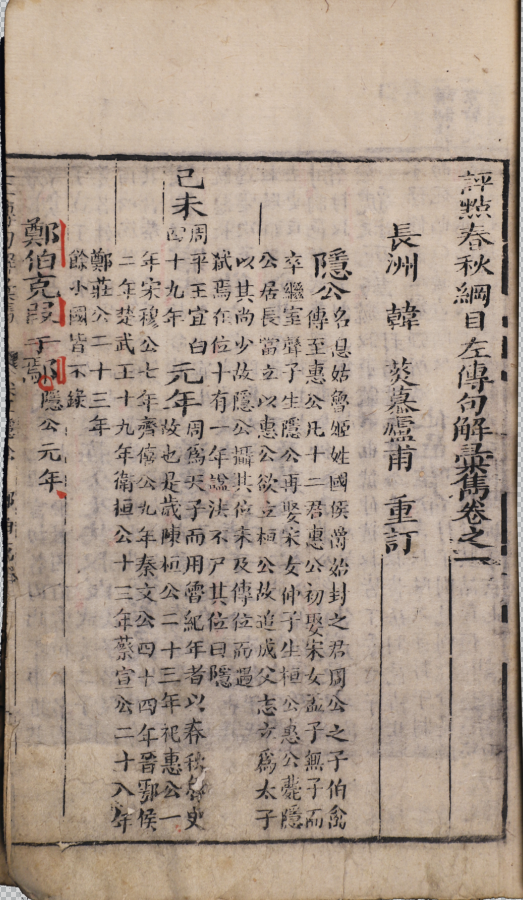 評㸃春秋綱目左傳句解彙雋卷之一
長洲 韓 菼慕廬甫 重訂
隱公 名息姑魯姬姓國侯爵始封之君周公之子伯禽
傳至惠公凡十二君惠公初娶宋女孟子無子而
卒繼室聲子生隱公再娶宋女仲子生桓公惠公薨隱
公居長當立以惠公欲立桓公故追成父志立爲太子
以其尚少故隱公攝其位未及傳位而遇
弑焉在位十有一年諡法不尸其位曰隱
己未 周平王宜臼四十九年 元年 周爲天子而用魯紀年者以春秋魯史
故也是歲陳桓公二十三年杞惠公一
年宋穆公七年齊僖公九年秦文公四十四年晉鄂侯
二年楚武王十九年衛桓公十三年蔡宣公二十八年
鄭莊公二十三年
餘小國皆不錄
鄭伯克段于鄢 隱公元年